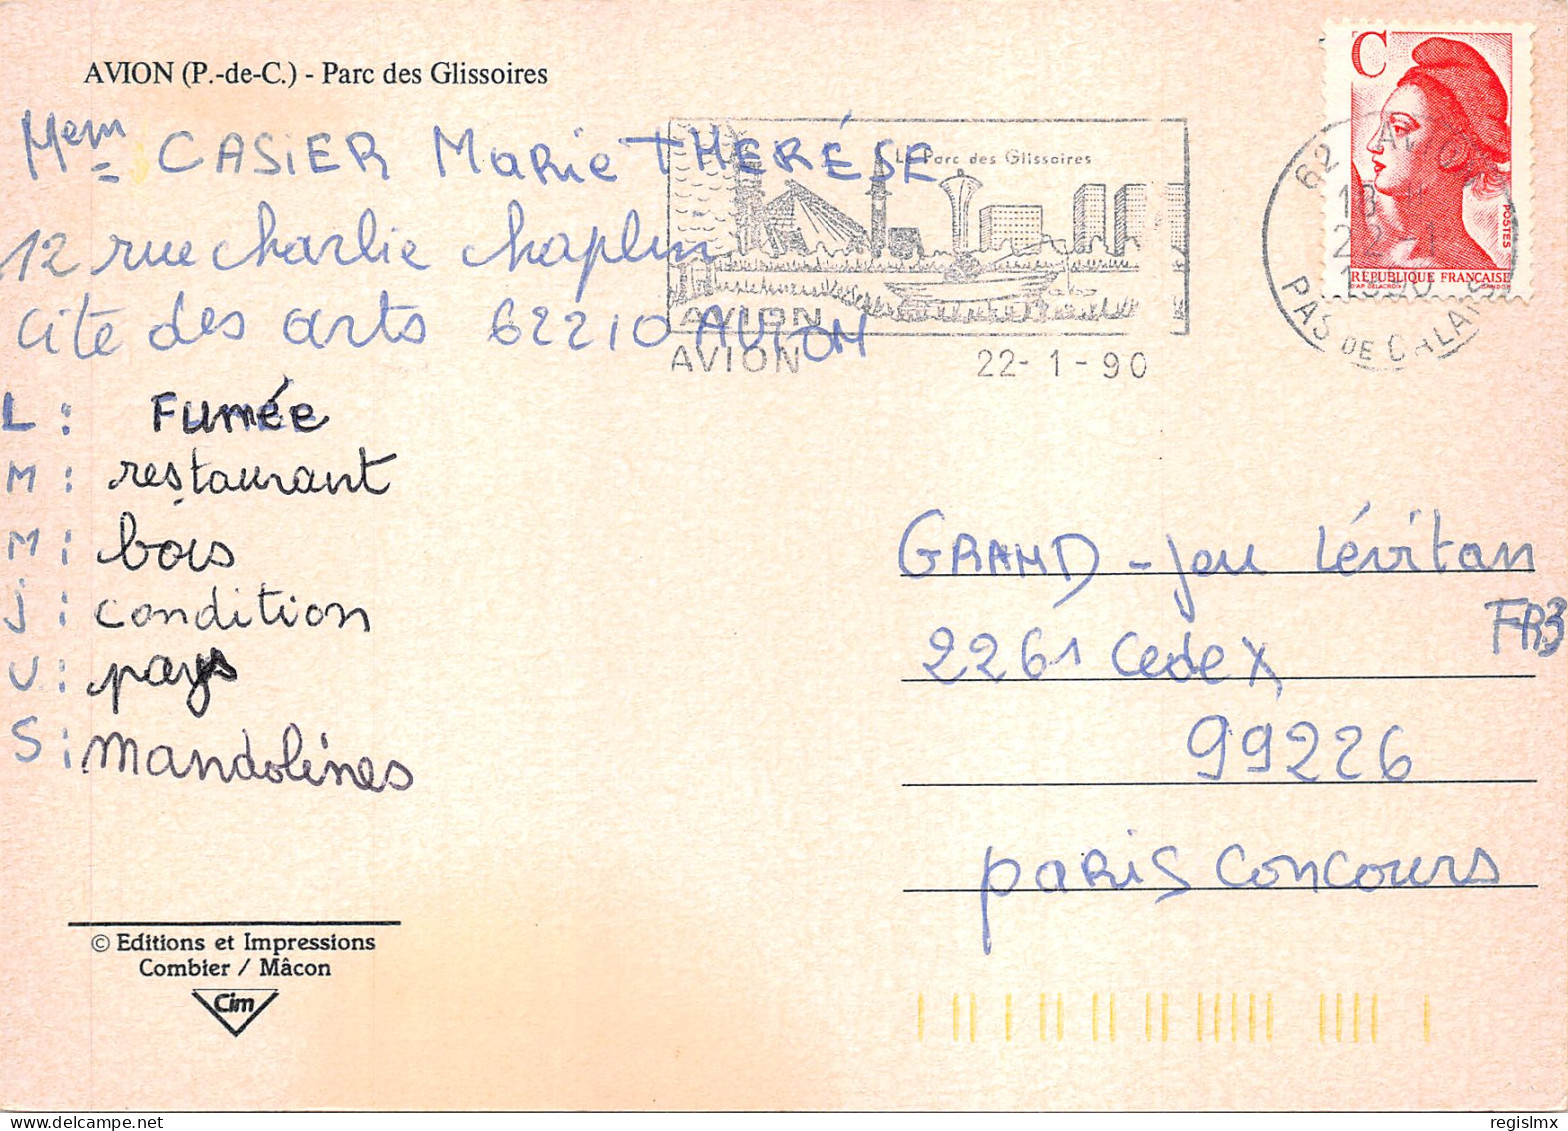 AVION (P.-de-C.) - Parc des Glissoires
Mem CASiER Marie THERÉSE
12 rue charlie chaplin
cite des arts 62210 AVION
L: Fumée
M: restaurant
M: bois
J: condition
V: pays
S: Mandolines
Le Parc des Glissoires
AVION
AVION 22-1-90
62 AVION
22-1
1990
PAS DE CALAIS
C
POSTES
REPUBLIQUE FRANÇAISE
D'AP. DELACROIX GANDON
GRAND-jeu Lévitan
FR3
2261 Cedex
99226
PARIS CONCOURS
© Editions et Impressions
Combier / Mâcon
Cim
regislmx